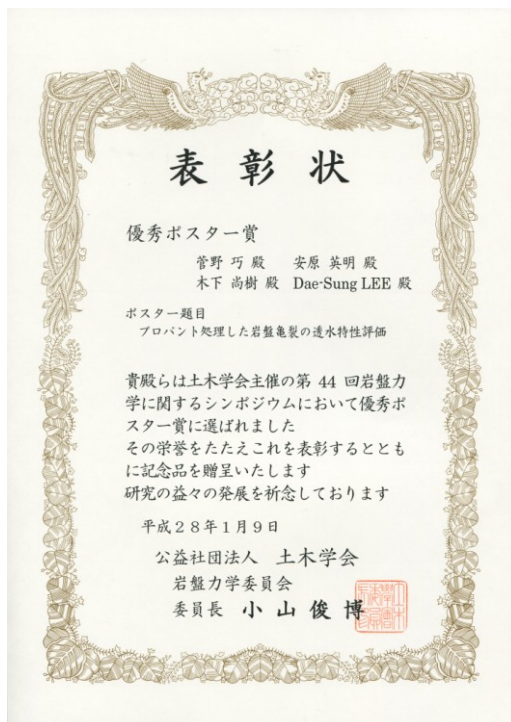 表彰状
優秀ポスター賞
菅野 巧 殿 安原 英明 殿
木下 尚樹 殿 Dae-Sung LEE 殿
ポスター題目
プロパント処理した岩盤亀裂の透水特性評価
貴殿らは土木学会主催の第 44 回岩盤力
学に関するシンポジウムにおいて優秀ポ
スター賞に選ばれました
その栄誉をたたえこれを表彰するととも
に記念品を贈呈いたします
研究の益々の発展を祈念しております
平成28年1月9日
公益社団法人 土木学会
岩盤力学委員会
委員長 小山俊博